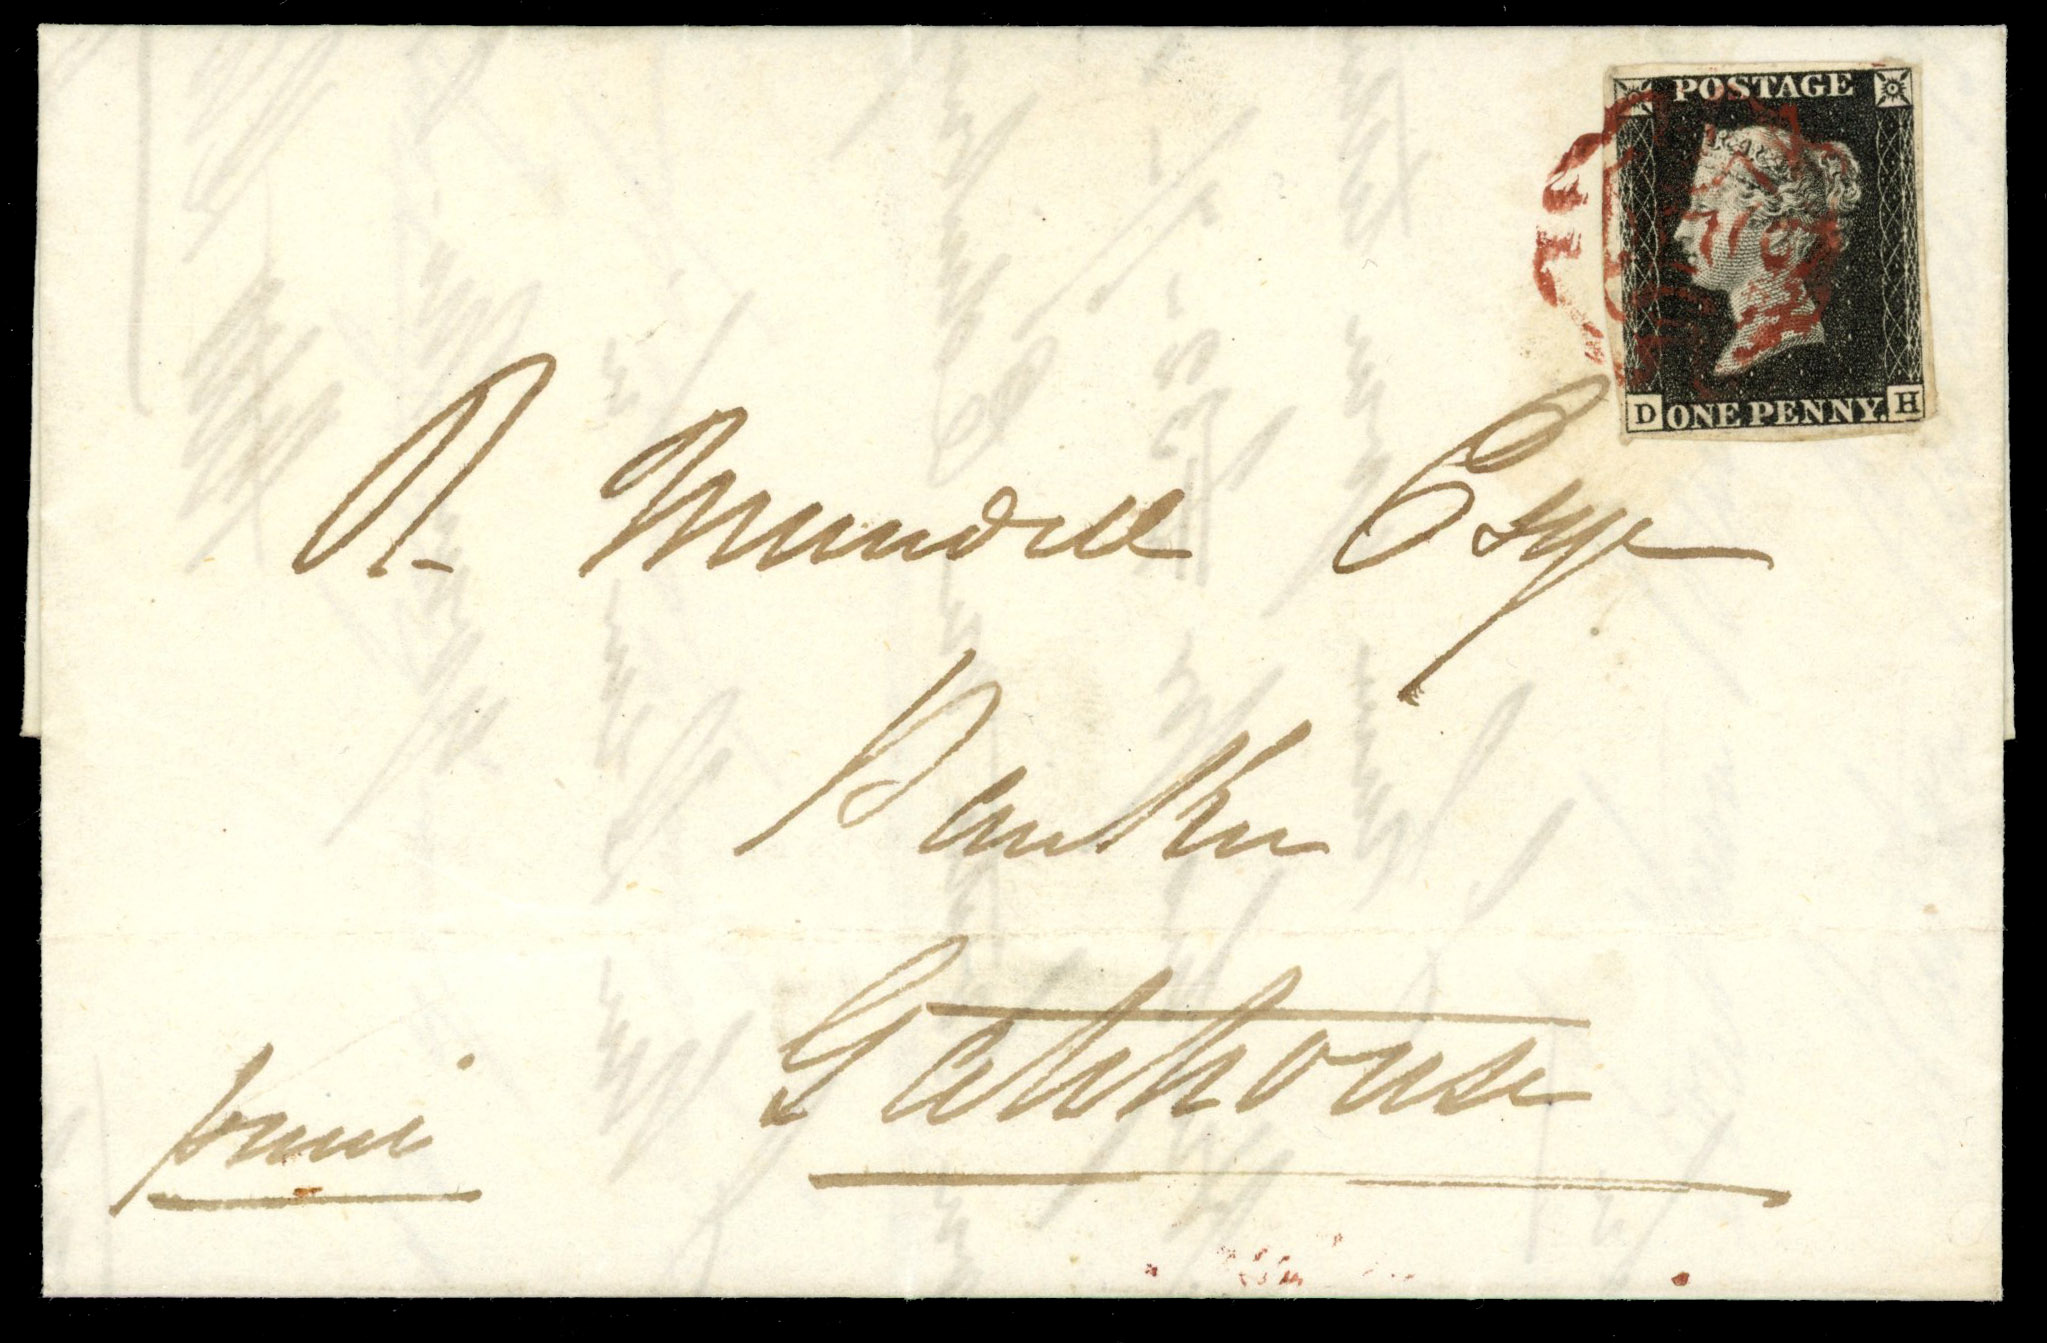 POSTAGE
D ONE PENNY. H
R. Mundell Esqr
Banker
Gatehouse